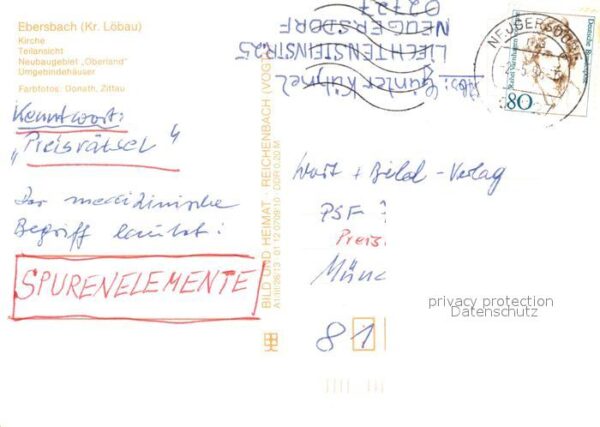 Ebersbach (Kr. Löbau)
Kirche
Teilansicht
Neubaugebiet „Oberland"
Umgebindehäuser
Farbfotos: Donath, Zittau
Kenntwort:
„Preisrätsel"
Der medizinische
Begriff lautet:
SPURENELEMENTE
BILD UND HEIMAT · REICHENBACH (VOGTL
Abs: Günter
LIECHTENSTEINSTR 25
NEUGERSDORF
02727
NEUGERSDORF
Deutsche Bundespost
80
Wort + Bild - Verlag
PSF
Preis
Münc
81
privacy protection
Datenschutz